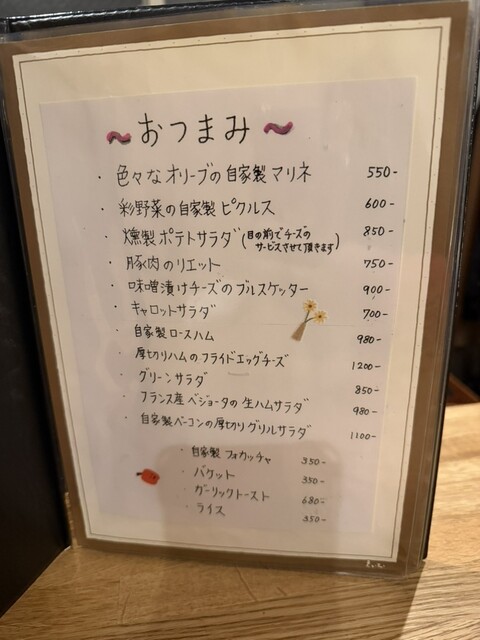 ~おつまみ~
・色々なオリーブの自家製マリネ 550-
・彩野菜の自家製ピクルス 600-
・燻製ポテトサラダ(目の前でチーズのサービスさせて頂きます) 850-
・豚肉のリエット 750-
・味噌漬けチーズのブルスケッター 900-
・キャロットサラダ 700-
・自家製ロースハム 980-
・厚切りハムのフライドエッグチーズ 1200-
・グリーンサラダ 850-
・フランス産ベジョータの生ハムサラダ 980-
・自家製ベーコンの厚切りグリルサラダ 1100-
・自家製フォカッチャ 350-
・バケット 350-
・ガーリックトースト 680-
・ライス 350-